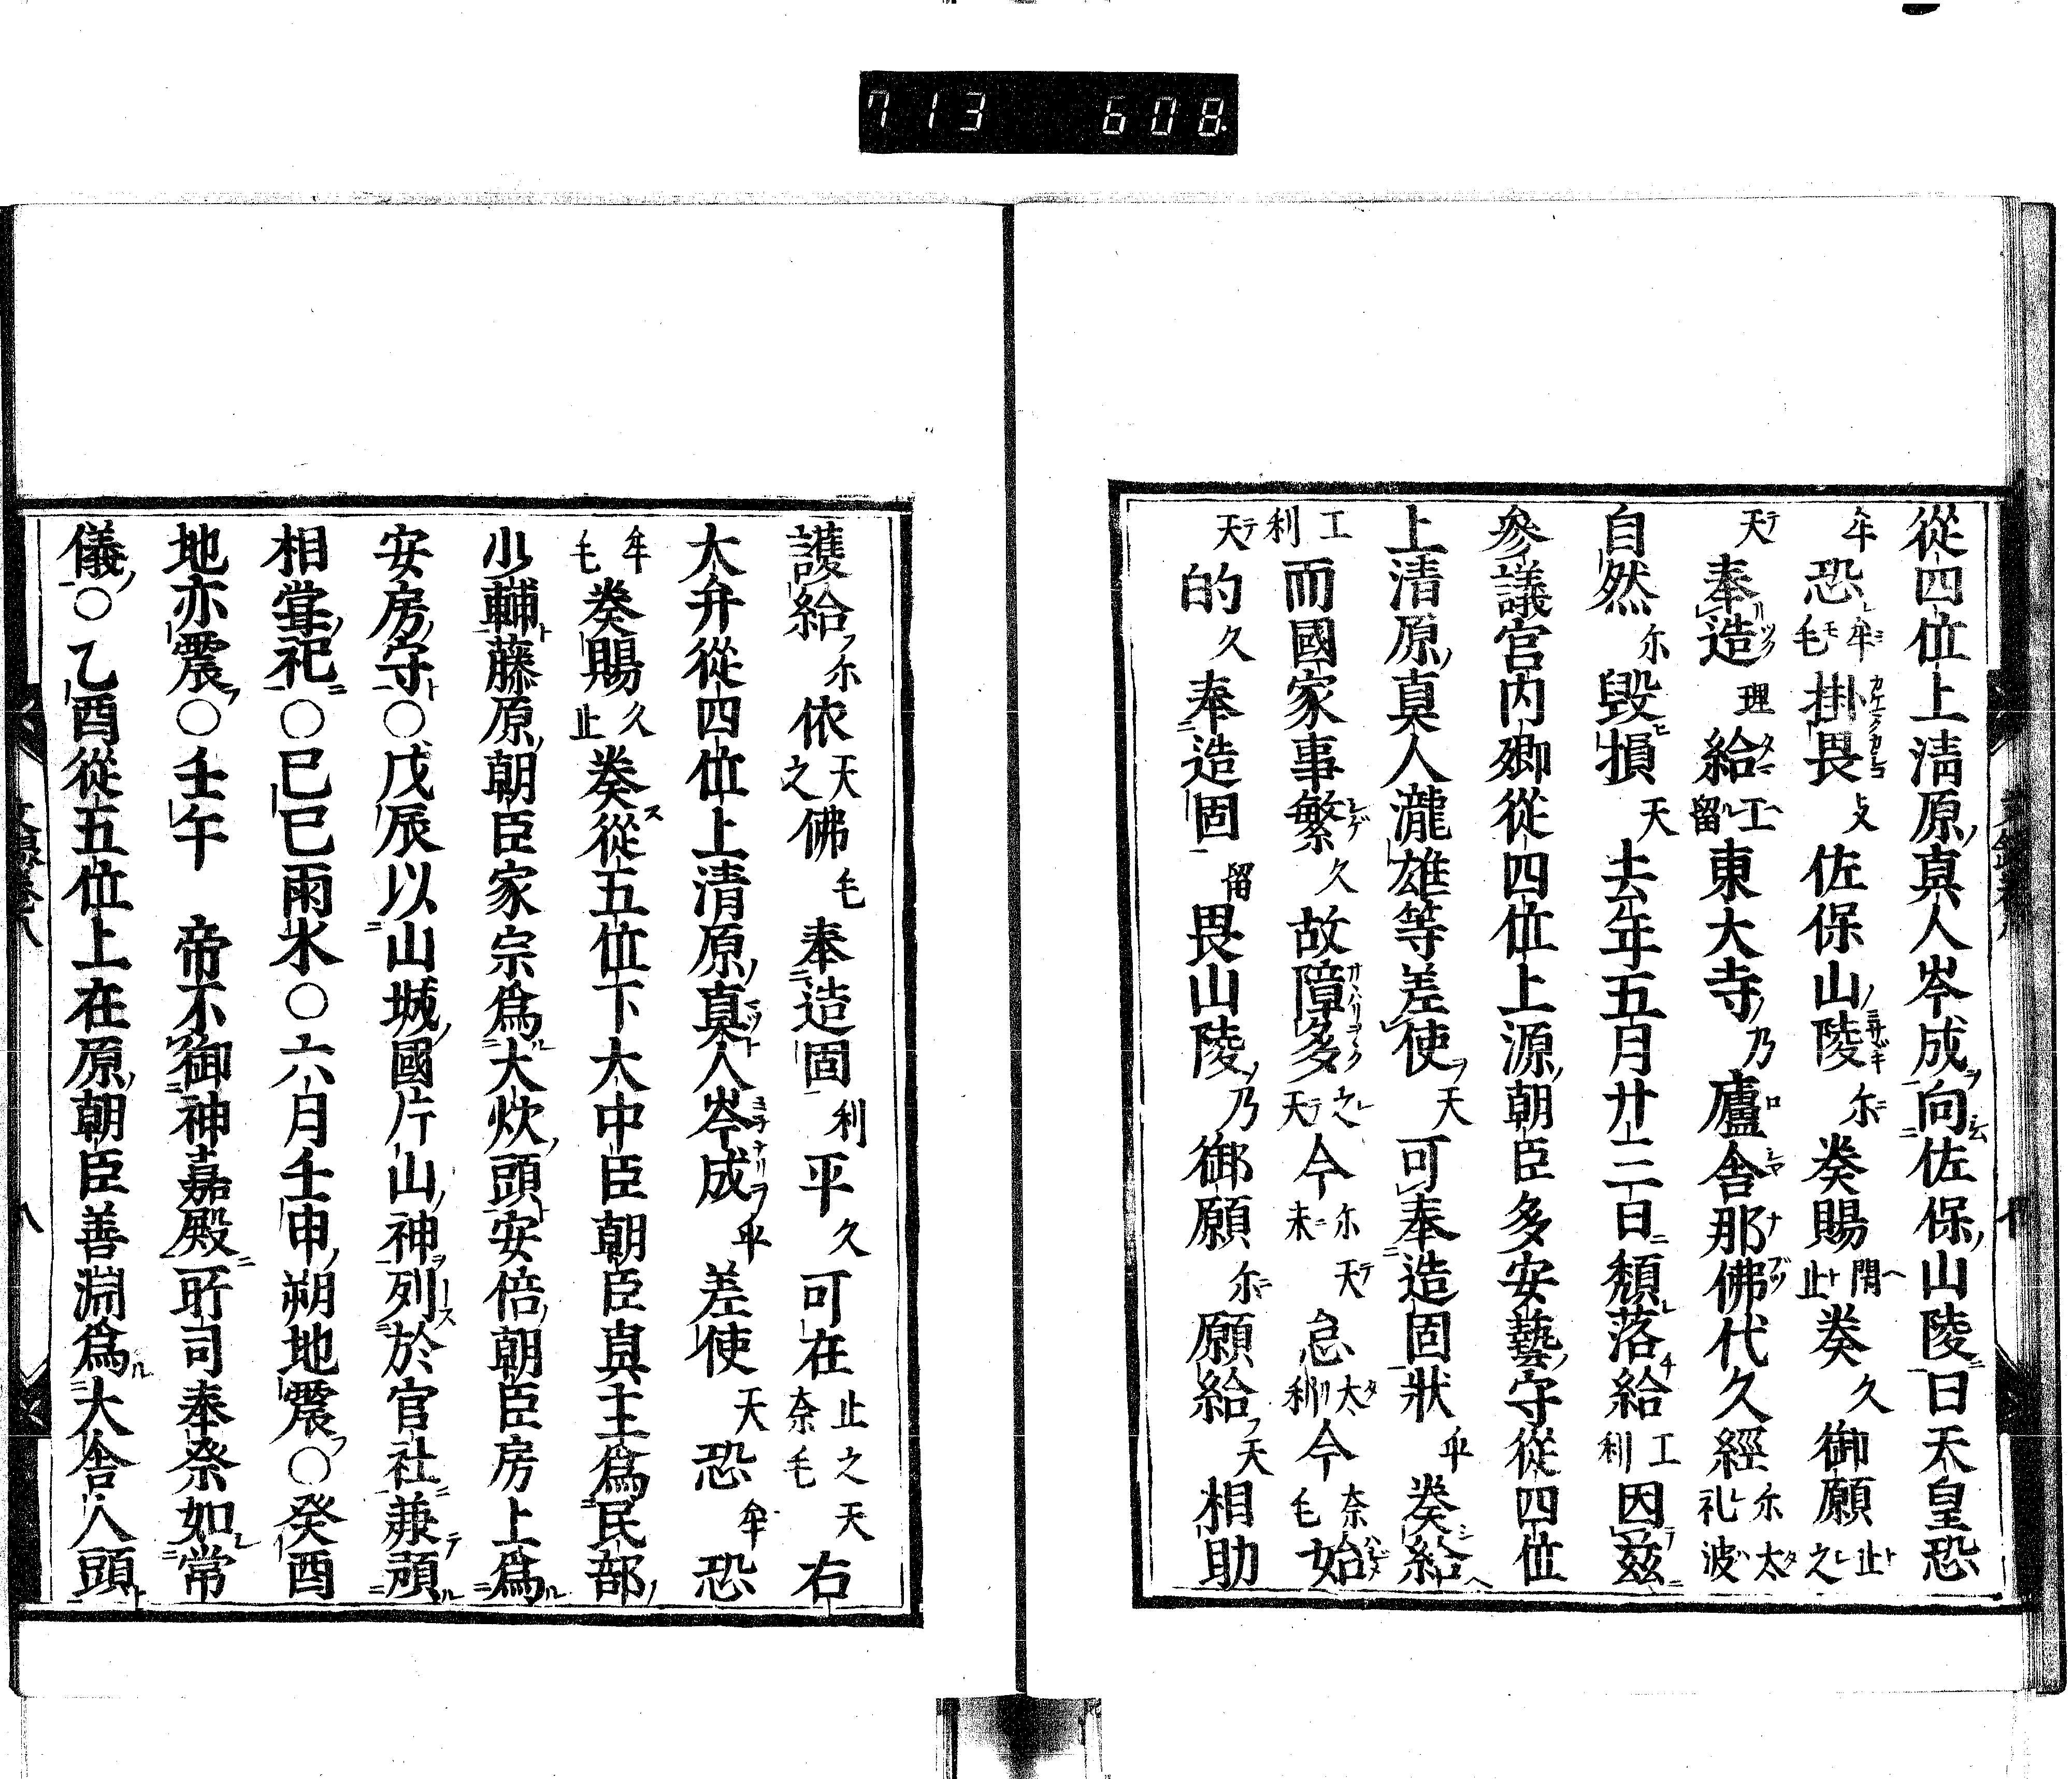 713 608.
從四位上淸原真人岑成向佐保山陵曰天皇恐
牟恐牟毛掛畏支佐保山陵尓奏賜閇止奏久御願止之
天奉造理給工留東大寺乃廬舎那佛代久經尓太礼波
自然尓毀損天去年五月廿三日頽落給工利因茲
參議宮内卿從四位上源朝臣多安藝守從四位
上清原真人瀧雄等差使天可奉造固狀乎奏給
工利而國家事繁久故障多之天今尓未天怠太利今奈毛始
天的久奉造固留畏山陵乃御願尓願給天相助
護給尓依天之佛毛奉造固利平久可在止之天奈毛右
大弁從四位上清原真人岑成乎差使天恐牟恐
牟毛奏賜久止奏從五位下大中臣朝臣真主爲民部
少輔藤原朝臣家宗爲大炊頭安倍朝臣房上爲
安房守〇戊辰以山城國片山神列於官社兼頒
相甞祀〇己巳雨水〇六月壬申朔地震〇癸酉
地亦震〇壬午 帝不御神嘉殿所司奉祭如常
儀〇乙酉從五位上在原朝臣善淵爲大舎人頭
八